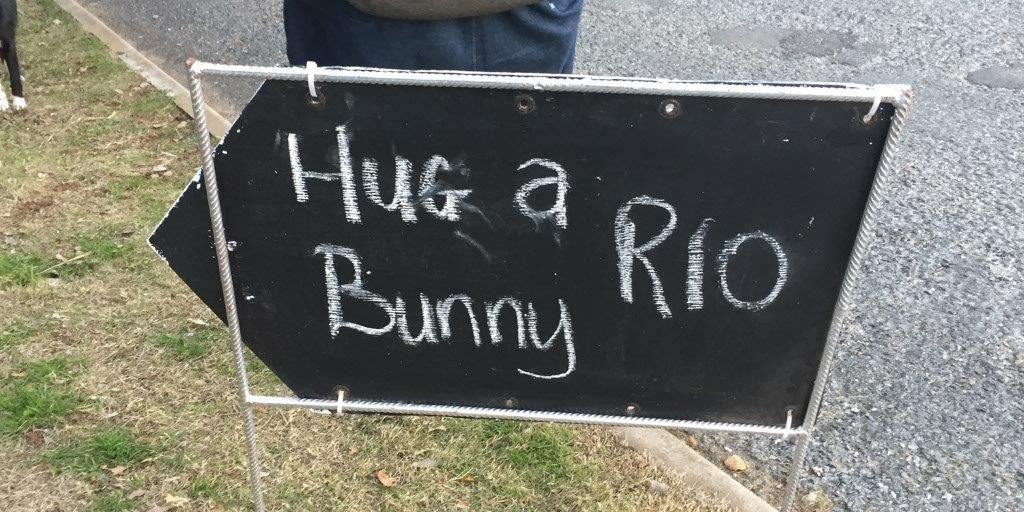 Hug a
Bunny
Rio